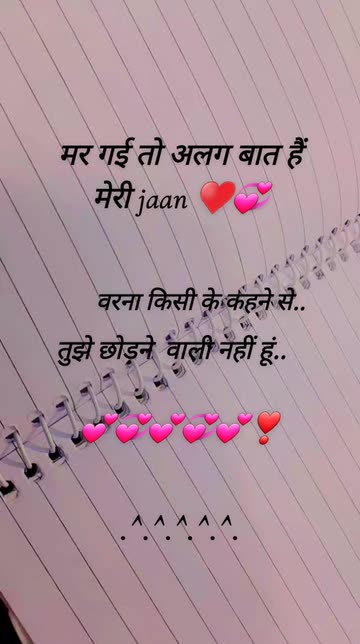 मर गई तो अलग बात हैं
मेरी jaan ♥️💞
वरना किसी के कहने से..
तुझे छोड़ने वाली नहीं हूं..
💕💞💕💞💕❣️
.^.^.^.^.^.